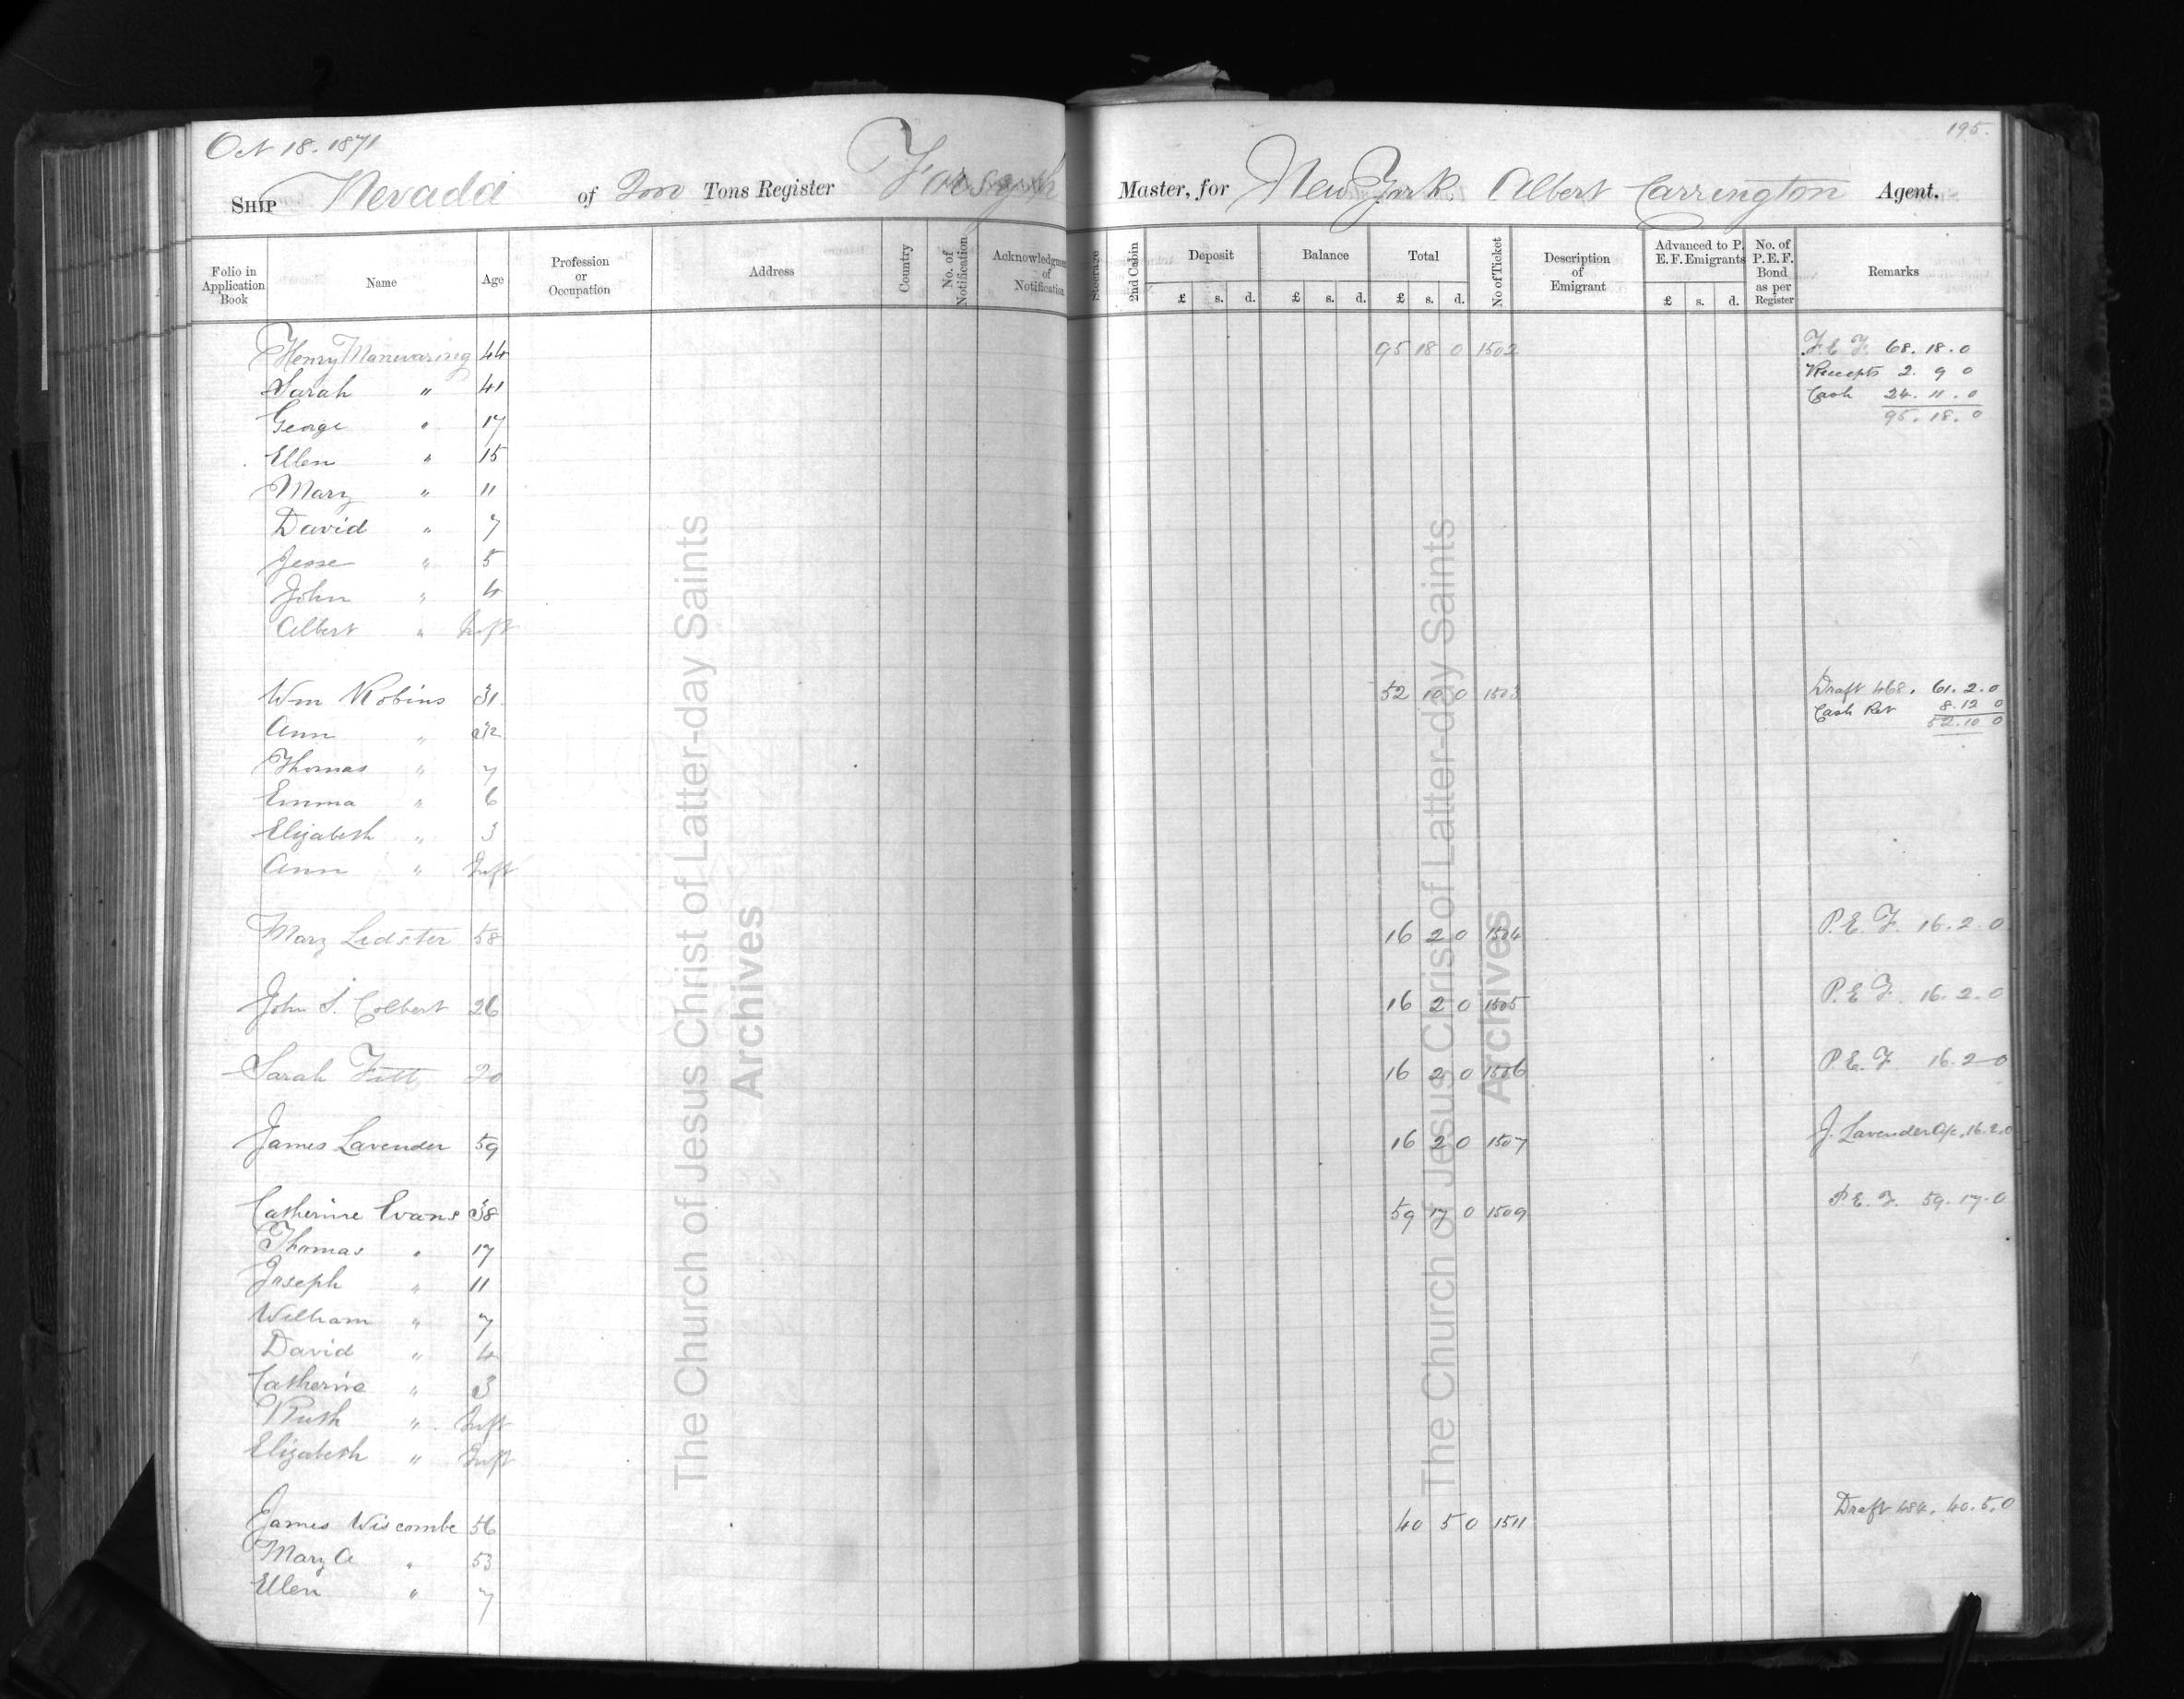 195.
Oct 18. 1871
Ship Nevada of Tons Register Forsyth Master, for New York Albert Carrington Agent.
Folio in Application Book Name Age Profession or Occupation Address Country No. of Notification Acknowledgment of Notification Steerage 2nd Cabin Deposit Balance Total No of Ticket Description of Emigrant Advanced to P. E. F. Emigrants No. of P.E.F. Bond as per Register Remarks
£ s. d. £ s. d. £ s. d. £ s. d.
Henry Manwaring 44 95 18 0 1502 P. E. F. 68. 18. 0
Receipts 2. 9 0
Sarah " 41 Cash 24. 11. 0
George " 17 95. 18. 0
Ellen " 15
Mary " 11
David " 7
Jesse " 5
John " 4
Albert " Inft
Wm Robins 31 52 10 0 1503 Draft 468. 61. 2. 0
Cash Ret 8. 12 0
Ann " 32 52. 10 0
Thomas " 7
Emma " 6
Elizabeth " 3
Ann " Inft
Mary Lidster 58 16 2 0 1504 P. E. F. 16. 2. 0
John S. Colbert 26 16 2 0 1505 P. E. F. 16. 2. 0
Sarah Fitt 20 16 2 0 1506 P. E. F. 16. 2 0
James Lavender 59 16 2 0 1507 J. Lavender a/c. 16. 2. 0
Catherine Evans 38 59 17 0 1509 P. E. F. 59. 17. 0
Thomas " 17
Joseph " 11
William " 7
David " 4
Catherine " 3
Ruth " Inft
Elizabeth " Inft
James Wiscombe 56 40 5 0 1511 Draft 484. 40. 5. 0
Mary A " 53
Ellen " 7
The Church of Jesus Christ of Latter-day Saints
Archives
The Church of Jesus Christ of Latter-day Saints
Archives